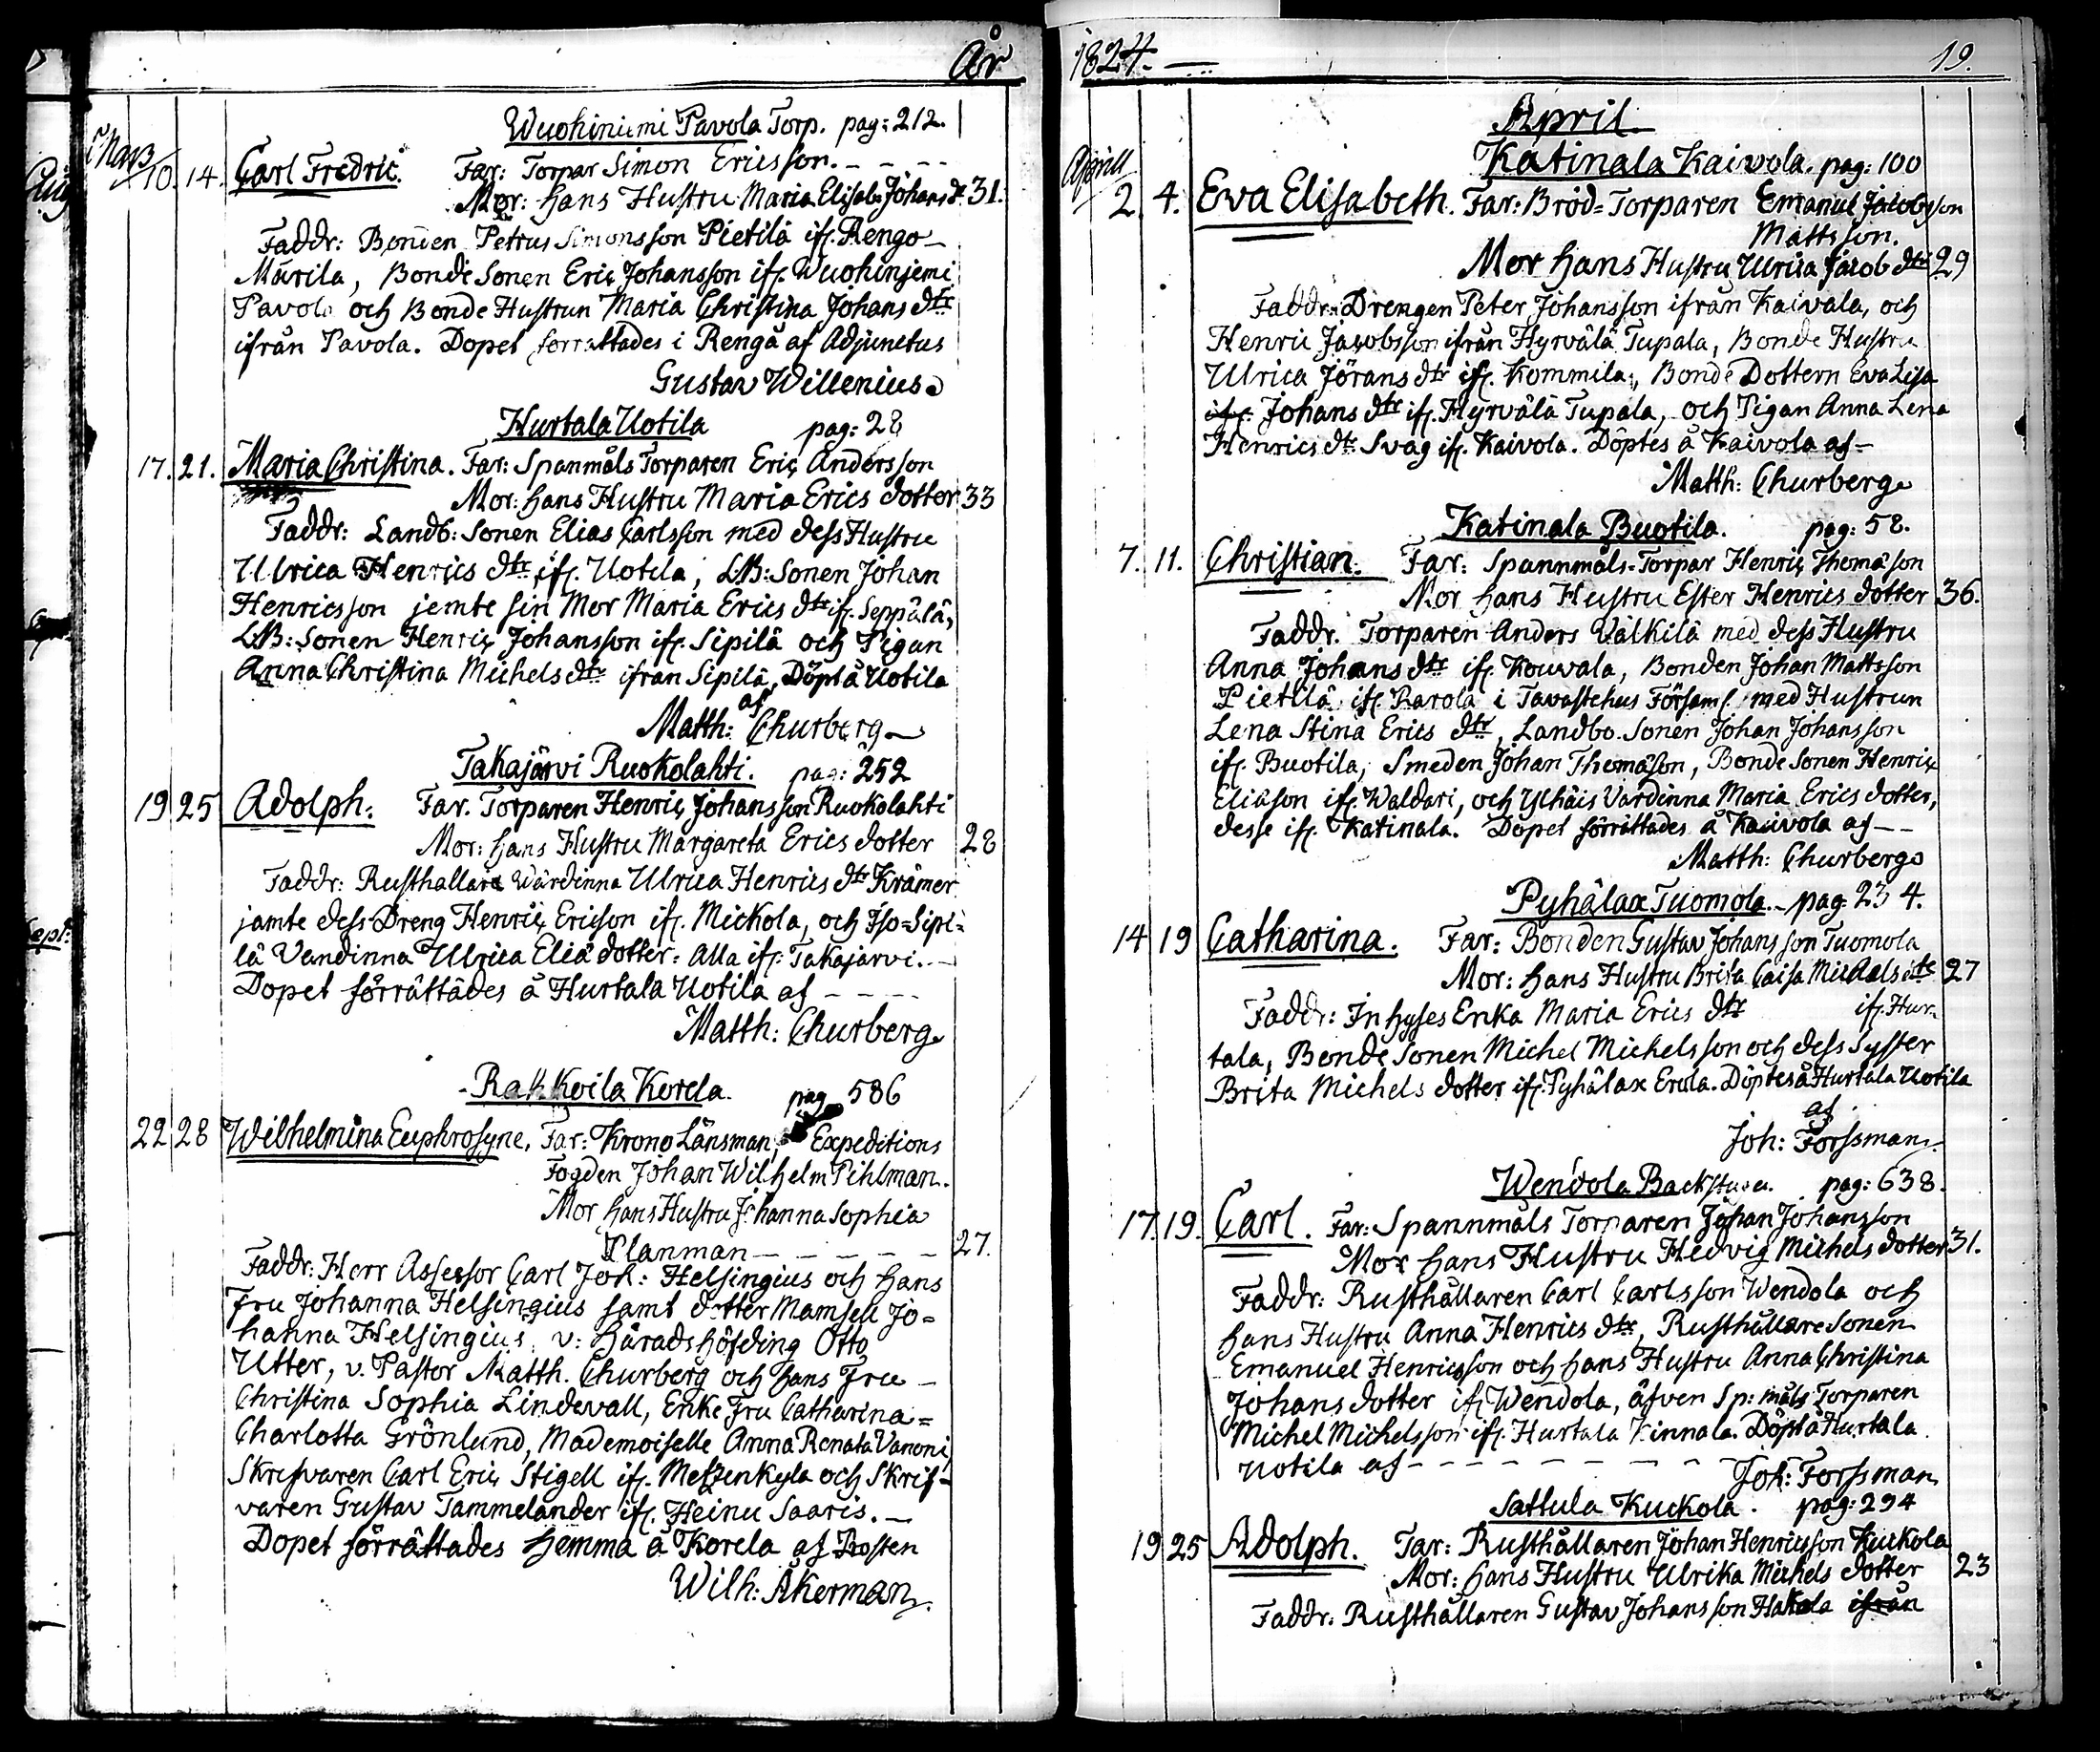 År
Wuohiniemi Pavola Torp. pag: 212.
Mars
10. 14. Carl Fredric. Far: Torpar Simon Ericsson. - - - -
Mor: hans Hustru Maria Elisab: Johansdr 31.
Faddr: Bonden Petrus Simonsson Pietilä ifr. Rengo-
Marila, Bonde Sonen Eric Johansson ifr. Wuohinjemi
Pavola och Bonde Hustrun Maria Christina Johans dtr
ifrån Pavola. Dopet förrättades i Rengå af Adjunctus
Gustav Willenius
Hurtala Uotila pag: 28
17. 21. Maria Christina. Far: Spanmåls Torparen Eric Andersson
Mor: hans Hustru Maria Erics dotter 33
Faddr: Landb: Sonen Elias Carlsson med dess Hustru
Ulrica Henrics dtr ifr. Uotila, LB: Sonen Johan
Henricsson jemte sin Mor Maria Erics dtr ifr. Seppälä,
LB: Sonen Henric Johansson ifr. Sipilä och Pigan
Anna Christina Michels dtr ifrån Sipilä, Döpt å Uotila
af
Matth: Churberg
Takajärvi Ruokolahti. pag: 252
19 25 Adolph: Far. Torparen Henric Johansson Ruokolahti
Mor: hans Hustru Margareta Erics dotter 28
Faddr: Rusthallare Wärdinna Ulrica Henrics dtr Krämer
jamte dess Dreng Henric Ericson ifr. Mickola, och Iso-Sipi-
lä Vandinna Ulrica Eliä dotter: Alla ifr. Takajarvi. -
Dopet förrättades å Hurtala Uotila af - - - -
Matth: Churberg
Rakkoila Korela. pag 586
22 28 Wilhelmina Euphrosyne, Far: Krono Länsman, Expeditions
Fogden Johan Wilhelm Pihlman.
Mor hans Hustru Johanna Sophia
Planman - - - - - 27.
Faddr: Herr Assessor Carl Joh: Helsingius och hans
Fru Johanna Helsingius samt dotter Mamsell Jo-
hanna Helsingius, v: Häradshöfding Otto
Utter, v. Pastor Matth. Churberg och hans Fru -
Christina Sophia Lindevall, Enke Fru Catharina=
Charlotta Grönlund, Mademoiselle Anna Renata Vanoni,
Skrifvaren Carl Eric Stigell ifr. Metzenkyla och Skrif-
varen Gustav Tammelander ifr. Heinu Saaris. -
Dopet förrättades hemma å Korela af Prosten
Wilh: Åkerman.
1824. - 19.
April
Katinala Kaivola. pag: 100
April
2. 4. Eva Elisabeth. Far: Bröd=Torparen Emanuel Jacobsson
Mattsson.
Mor hans Hustru Ulrica Jacob dtr 29
Faddr: Drengen Peter Johansson ifrån Kaivala, och
Henric Jacobsson ifrån Hyrvälä Tupala, Bonde Hustru
Ulrica Jörans dtr ifr. Kommila, Bonde Dottern Eva Lisa
ifr. Johans dtr ifr. Hyrvälä Tupala, och Pigan Anna Lena
Henrics dtr Svag ifr. Kaivola. Döptes å Kaivola af -
Matth: Churberg
Katinala Buotila. pag: 58.
7. 11. Christian. Far: Spannmåls-Torpar Henric Thomäson
Mor hans Hustru Ester Henrics dotter 36.
Faddr. Torparen Anders Välkilä med dess Hustru
Anna Johans dtr ifr. Kouvala, Bonden Johan Mattsson
Pietilä ifr. Parola i Tavastehus Församl. med Hustrun
Lena Stina Erics dtr, Landbo. Sonen Johan Johansson
ifr. Buotila, Smeden Johan Thomäson, Bonde Sonen Henric
Eliäson ifr. Waldari, och Ylhäis Vardinna Maria Erics dotter,
desse ifr. Katinala. Dopet förrättades å Kaivola af - -
Matth: Churberg
Pyhälax Tuomola. - pag 234.
14 19 Catharina. Far: Bonden Gustav Johansson Tuomola
Mor: hans Hustru Brita Caisa Michels dtr 27
Faddr: Inhyses Enka Maria Erics dtr ifr. Hur-
tala, Bonde Sonen Michel Michelsson och dess Syster
Brita Michels dotter ifr. Pyhälax Erola. Döptes å Hurtala Uotila
af
Joh: Forssman.
Wendola Backstuga. pag: 638.
17. 19. Carl. Far: Spannmåls Torparen Johan Johansson
Mor hans Hustru Hedvig Michels dotter 31.
Faddr: Rusthållaren Carl Carlsson Wendola och
hans Hustru Anna Henrics dtr, Rusthållare Sonen
Emanuel Henricsson och hans Hustru Anna Christina
Johans dotter ifr Wendola, äfven Sp: måls Torparen
Michel Michelsson ifr. Hurtala Kinnala. Döpt å Hurtala
Uotila af - - - - - - - -
Joh: Forssman
Sattula Kuckola. pag: 294
19 25 Adolph. Far: Rusthållaren Johan Henricsson Kuckola
Mor: hans Hustru Ulrika Michels dotter 23
Faddr: Rusthållaren Gustav Johansson Hakala ifrån